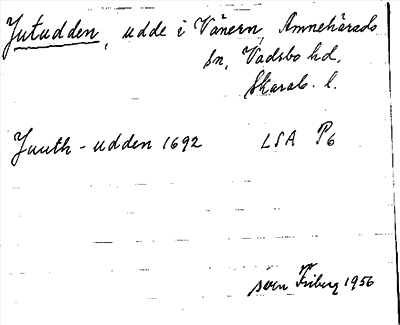 Jutudden, udde i Vänern, Amnehärads
sn, Vadsbo hd,
Skarab. l.
Juuth-udden 1692 LSA P6
Sven Friberg 1956